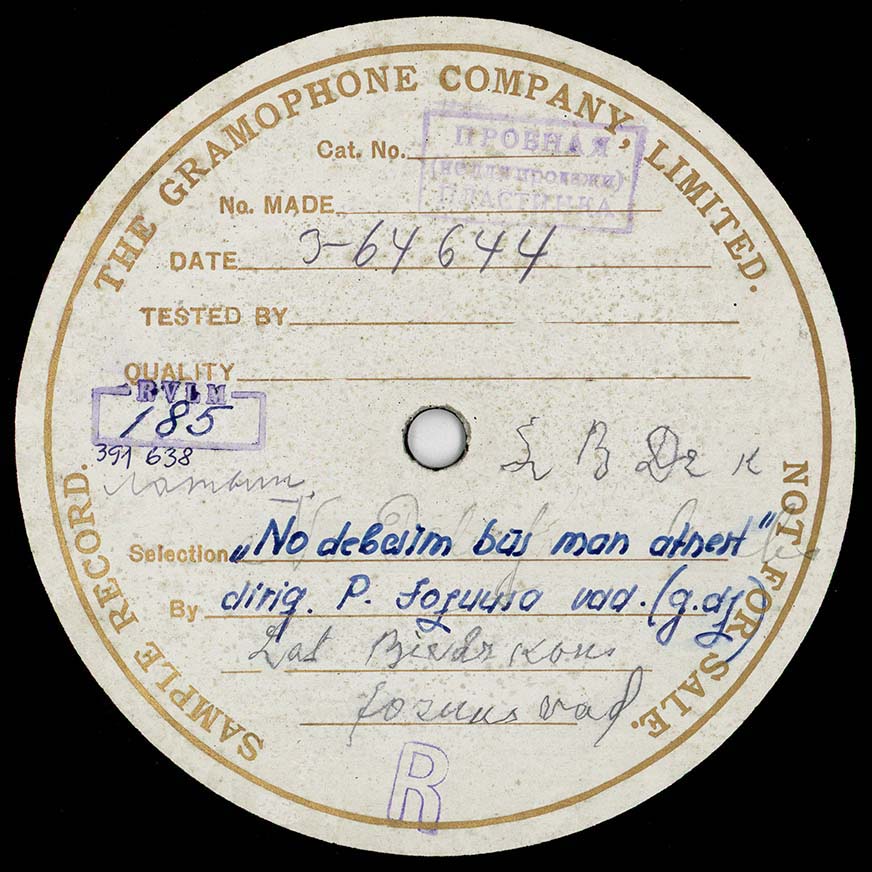 THE GRAMOPHONE COMPANY, LIMITED.
Cat. No.
ПРОБНАЯ
(не для продажи)
ПЛАСТИНКА
No. MADE
DATE 3-64644
TESTED BY
QUALITY
RVLM
185
391 638
латыш.
Ł B Dz K
Selection „No debesīm būs man atnest"
By dirig. P. Jozuusa vad. (g.dz)
Lat Biedr kons
Jozuus vad
R
SAMPLE RECORD.
NOT FOR SALE.